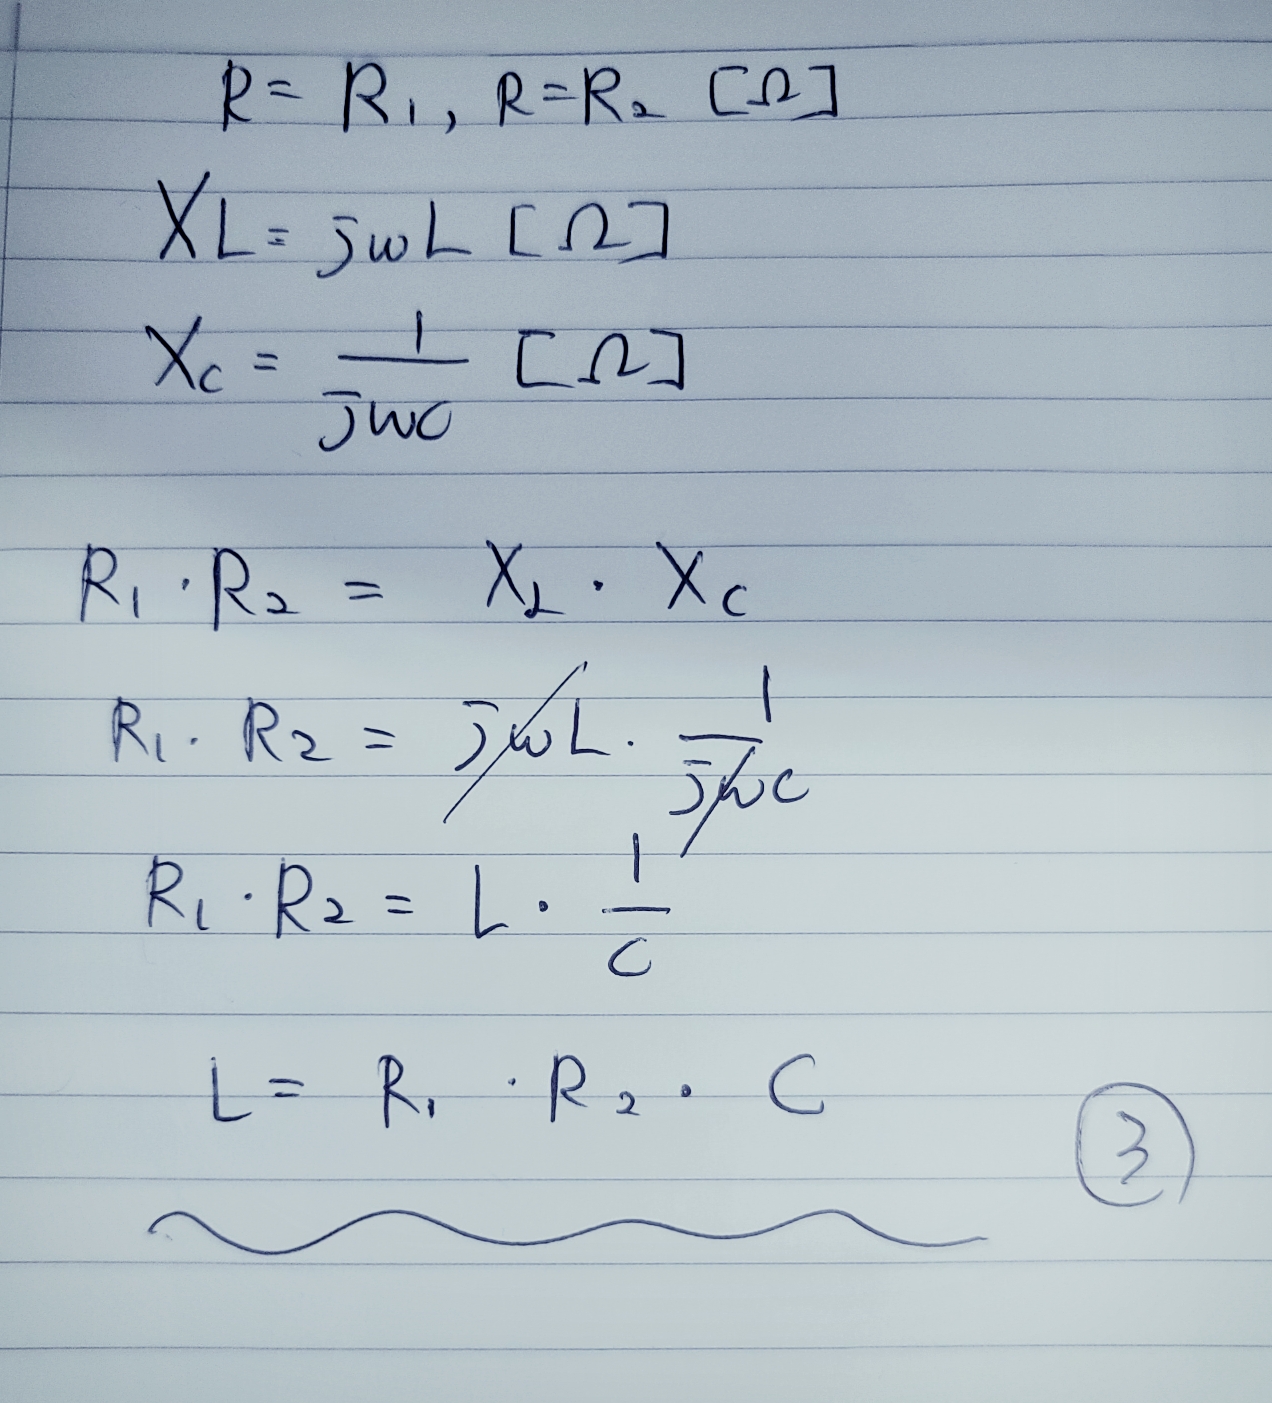 R = R₁, R = R₂ [Ω]
XL = jωL [Ω]
Xc = 1/jωc [Ω]
R₁ · R₂ = X_L · Xc
R₁ · R₂ = jωL · 1/jωc
R₁ · R₂ = L · 1/c
L = R₁ · R₂ · C
③